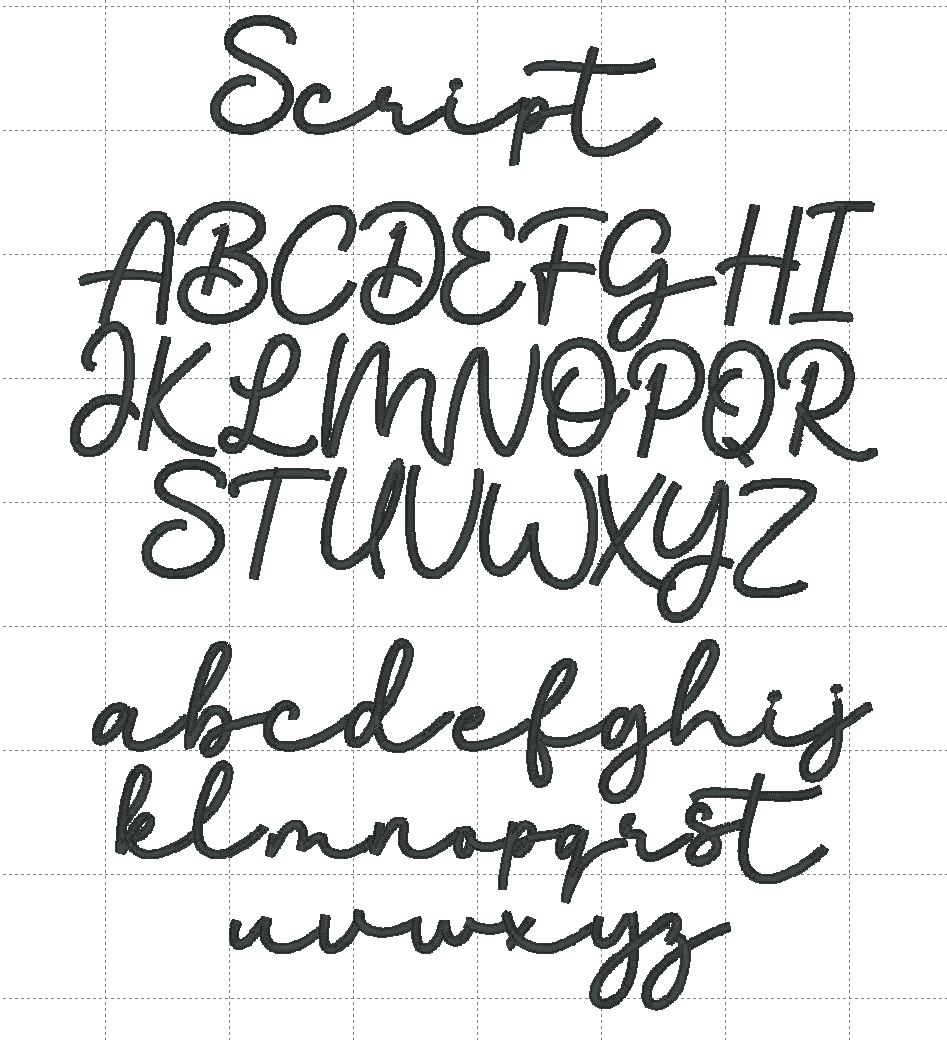 Script
ABCDEFGHI
JKLMNOPQR
STUVWXYZ
abcdefghij
klmnopqrst
uvwxyz